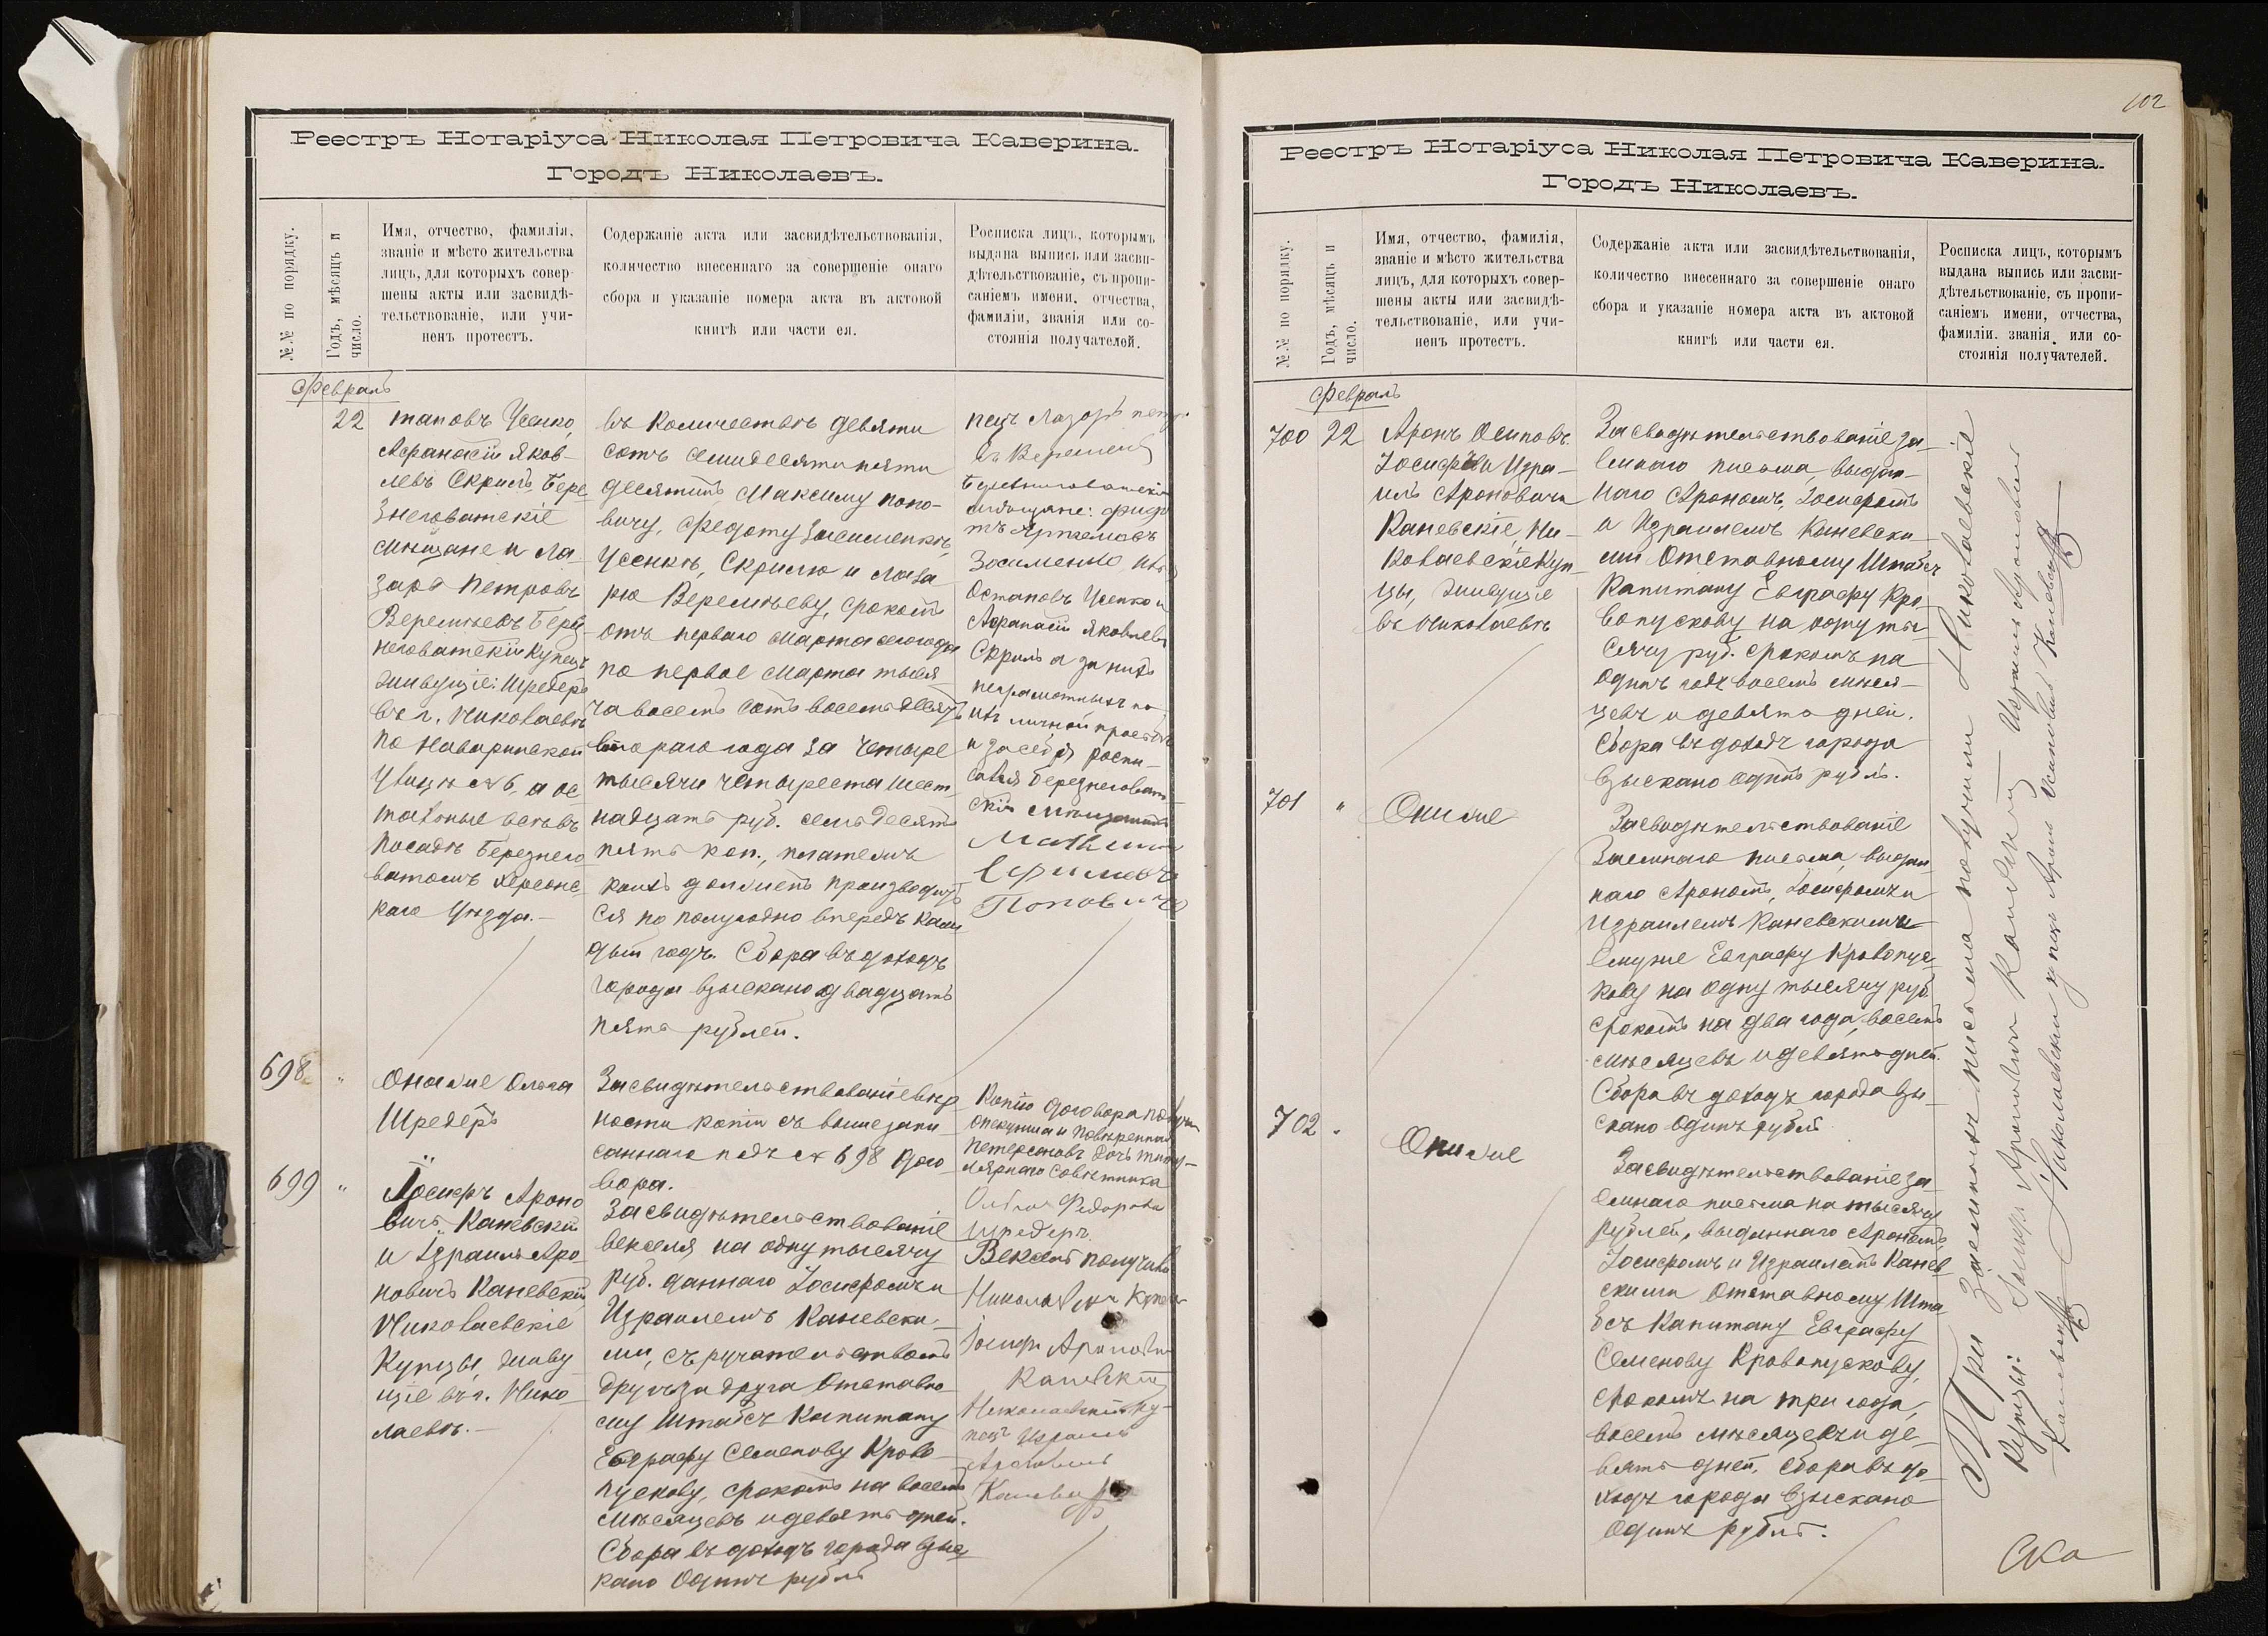 Реестръ Нотаріуса Николая Петровича Каверина.
Городъ Николаевъ.
№.№ по порядку.
Годъ, мѣсяцъ и
число.
Имя, отчество, фамилія,
званіе и мѣсто жительства
лицъ, для которыхъ совер-
шены акты или засвидѣ-
тельствованіе, или учи-
ненъ протестъ.
Содержаніе акта или засвидѣтельствованія,
количество внесеннаго за совершеніе онаго
сбора и указаніе номера акта въ актовой
книгѣ или части ея.
Росписка лицъ, которымъ
выдана выпись или засви-
дѣтельствованіе, съ пропи-
саніемъ имени, отчества,
фамиліи, званія или со-
стоянія получателей.
Февраль
22
таповъ Усенко,
Афанасій Яков-
левъ Скриль Бере
знеговатскіе
мѣщане и Ла-
зарь Петровъ
Веремѣевъ Берез-
неговатскій Купецъ
живущіе: Шредеръ
въ г. Николаевѣ
по Наваринской
улицѣ №6, а ос
тальные всѣ въ
посадѣ Березнего
ватомъ Херсонс-
каго уѣзда.
въ количествѣ девяти
сотъ семидесяти пяти
десятинъ Максиму Попо-
вичу, Федоту Засименкѣ,
Усенкѣ, Скрилю и Лаза
рю Веремѣеву, срокомъ
отъ перваго Марта сего года
по первое Марта тыся
ча восемь сотъ восемьдесятъ
втораго года за четыре
тысячи четыреста шест
надцать руб. семьдесятъ
пять коп., платежъ
коихъ долженъ производить
ся по полугодно впередъ каж
дый годъ. Сбора въ доходъ
города взыскано двадцать
пять рублей.
пецъ Лазорь
Березниговатскіи
мѣщане:
тъ Артемовъ
Засименко
Остаповъ Усенко и
Афанасій Яковлевъ
Скриль а за нихъ
неграмотныхъ по
ихъ личной просьбѣ
и за себя роспи-
сался Березнеговат-
скій мѣщанинъ
Максимъ
Ефимовъ
Поповичъ
698
"
Онаже Ольга
Шредеръ
Засвидѣтельствованіе вѣр
ности копіи съ вышезапи
саннаго подъ № 698 дого
вора.
Копію договора получи
опекунша и повѣренная
Петерсоновъ Дочь титу-
лярнаго Совѣтника
Ольга Федорова
Шредеръ.
699
"
Іосифъ Ароно
вичъ Каневскій
и Израиль Аро
новичъ Каневскій
Николаевскіе
Купцы, живу
щіе въ г. Нико
лаевѣ.
Засвидѣтельствованіе
векселя на одну тысячу
руб. даннаго Іосифомъ и
Израилемъ Каневски-
ми, съ ручательствомъ
другъ за друга Отставно
му Штабсъ Капитану
Евграфу Семенову Крово
пускову, срокомъ на восемь
мѣсяцевъ и девять дней.
Сбора въ доходъ города взыс
кано Одинъ рубль
Вексель получили
Іосифъ Ароновичъ
Каневскій
Николаевскій ку-
пецъ Израиль
Ароновичъ
102
Реестръ Нотаріуса Николая Петровича Каверина.
Городъ Николаевъ.
№.№ по порядку.
Годъ, мѣсяцъ и
число.
Имя, отчество, фамилія,
званіе и мѣсто жительства
лицъ, для которыхъ совер-
шены акты или засвидѣ-
тельствованіе, или учи-
ненъ протестъ.
Содержаніе акта или засвидѣтельствованія,
количество внесеннаго за совершеніе онаго
сбора и указаніе номера акта въ актовой
книгѣ или части ея.
Росписка лицъ, которымъ
выдана выпись или засви-
дѣтельствованіе, съ пропи-
саніемъ имени, отчества,
фамиліи. званія. или со-
стоянія получателей.
Февраль
700
22
Аронъ Осиповъ
Іосифъ и Изра-
иль Ароновичи
Каневскіе, Ни-
колаевскіе Куп-
цы, живущіе
въ Николаевѣ
Засвидѣтельствованіе за-
емнаго письма, выдан-
наго Арономъ, Іосифомъ
и Израилемъ Каневски
ми Отставному Штабсъ
Капитану Евграфу Кро
вопускову на одну ты
сячу руб. срокомъ на
одинъ годъ восемь мѣся-
цевъ и девять дней.
Сбора въ доходъ города
взыскано одинъ рубль.
701
"
Ониже
Засвидѣтельствованіе
Заемнаго письма, выдан
наго Арономъ, Іосифомъ и
Израилемъ Каневскими
Емуже Евграфу Кровопус-
кову на одну тысячу руб.
срокомъ на два года, восемь
мѣсяцевъ и девять дней.
Сбора въ доходъ города взы-
скано Одинъ рубль
702
"
Ониже
Засвидѣтельствованіе за
емнаго письма на тысячу
рублей, выданнаго Арономъ,
Іосифомъ и Израилемъ Канев-
скими Отставному Шта
бсъ Капитану Евграфу
Семенову Кровопускову,
срокомъ на три года,
восемь мѣсяцевъ и де-
вять дней. Сбора въ до-
ходъ города взыскано
Одинъ рубль.
Три заемныхъ письма получили Николаевскіе
Купцы: Іосифъ Ароновичъ Каневскій Израиль Ароновичъ
Каневскій Николаевскій купецъ Аронъ Осиповичъ Каневскій